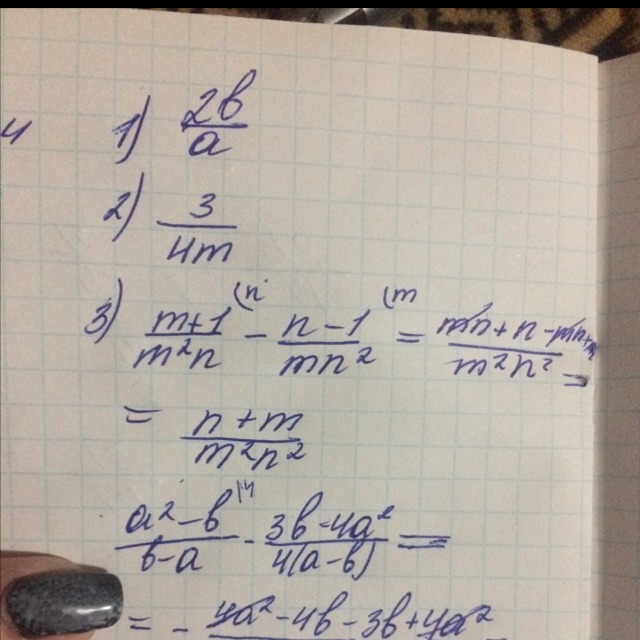 1) 2b/a
2) 3/4m
3) (m+1)/(m²n) (n - (n-1)/(mn²) (m = (mn+n-mn+m)/(m²n²) =
= (n+m)/(m²n²)
(a²-b)/(b-a) (4 - (3b-4a²)/(4(a-b)) =
= - 4a²-4b-3b+4a²